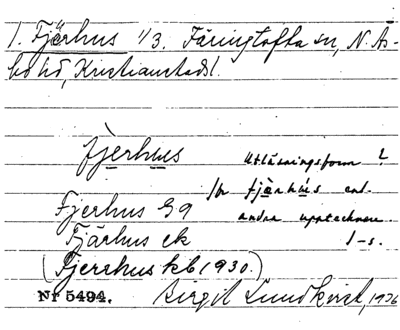 1. Fjärhus 1/3. Färingtofta sn, N. Ås-
bo hd, Kristianstads l.
fjerhus
Uttalsningsform?
fjärhus enl.
Fjerhus G 9
andra upptecknare
Fjärhus ek
1-s.
(Fjerrhus kb 1930.)
Nr 5494. Birgit Sundkvist, 1926